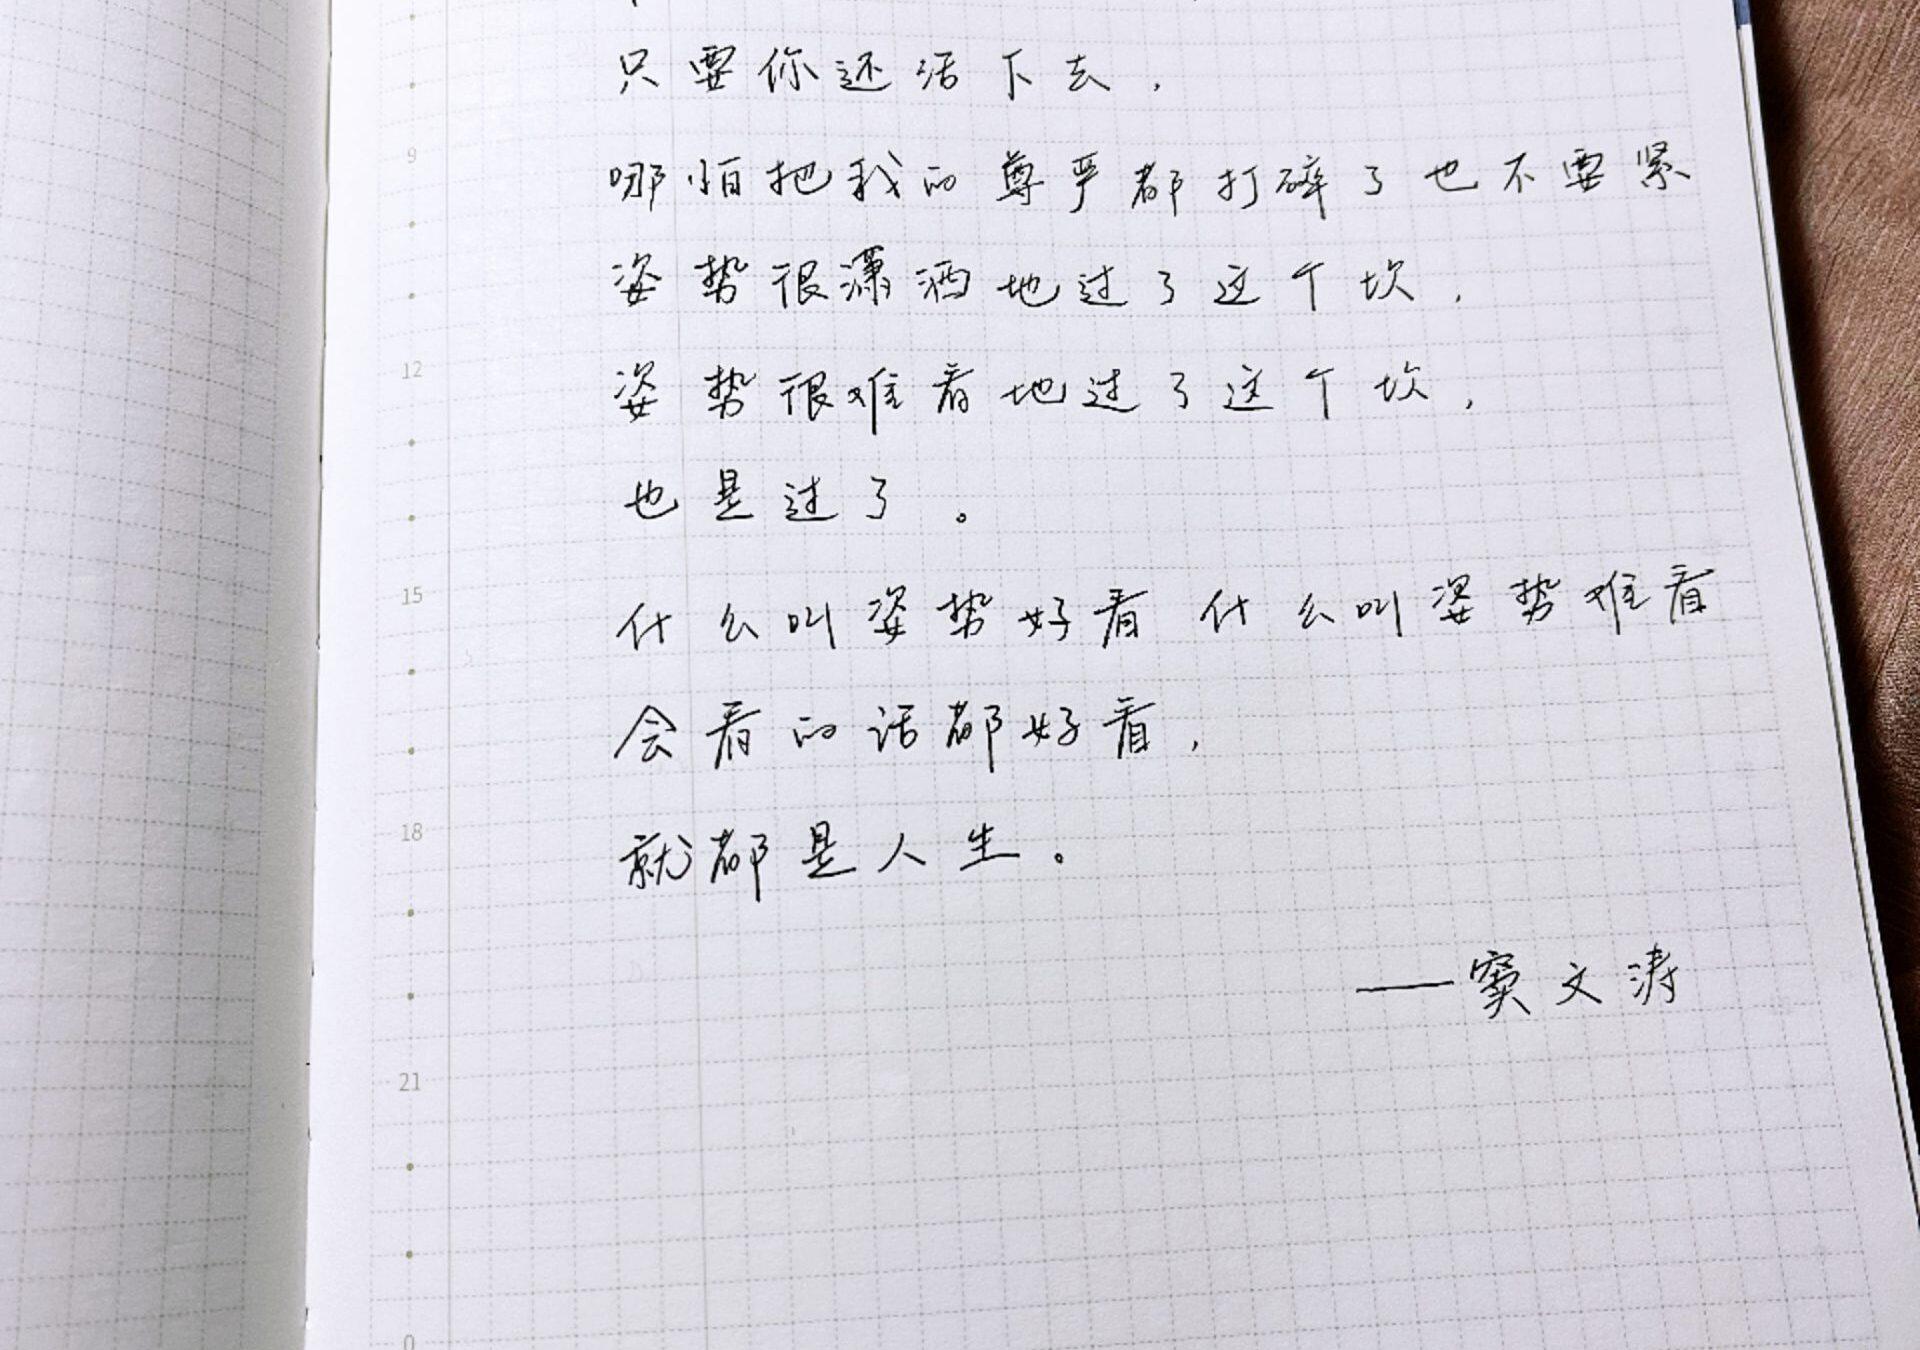 只要你还活下去，
9
哪怕把我的尊严都打碎了也不要紧
姿势很潇洒地过了这个坎，
12
姿势很难看地过了这个坎，
也是过了。
15
什么叫姿势好看 什么叫姿势难看
会看的话都好看，
18
就都是人生。
——窦文涛
21
0